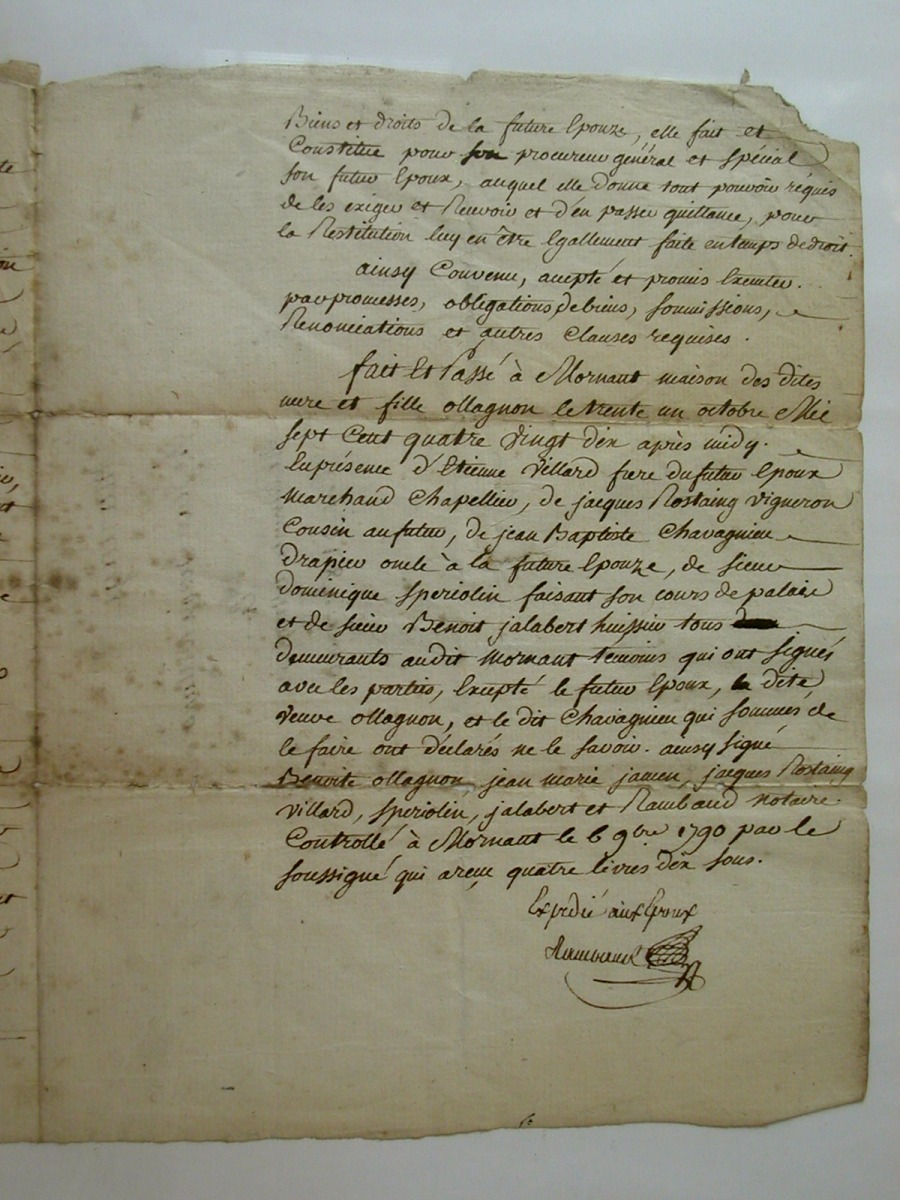 Biens et droits de la future Epouze, elle fait et
Constitue pour son procureur général et spécial
son futur Epoux, auquel elle donne tout pouvoir réquis
de les exiger et Recevoir et d'en passer quittance, pour
la Restitution luy en être Egallement faite entemps de droit.
ainsy Convenu, accepté et promis Executer.
par promesses, obligations de biens, soumissions,
Renonciations et autres clauses requises.
fait Et Passé à Mornant maison des dites
mere et fille ollagnon le trente un octobre Mil
sept Cent quatre Vingt dix après midy.
En présence d'Etienne Villard frere du futur Epoux
Marchand Chapellier, de jacques Rostaing Vigneron
Cousin au futur, de jean Baptiste Chavagnieu
drapier oncle à la future Epouze, de sieur
dominique Speriolin faisant son cours de palais
et de sieur Benoit jalabert huissier tous
demeurants audit Mornant temoins qui ont signés
avec les parties, Excepté le futur Epoux, la dite
Veuve ollagnon, et le dit Chavagnieu qui sommés de
le faire ont déclarés ne le savoir. ainsy signé
Benoite ollagnon jean marie jamen, jacques Rostaing
Villard, Speriolin, jalabert et Rambaud notaire.
Controllé à Mornant le 6 9bre 1790 par le
soussigné qui a reçu quatre livres dix sous.
Expedié aux Epoux
Rambaud